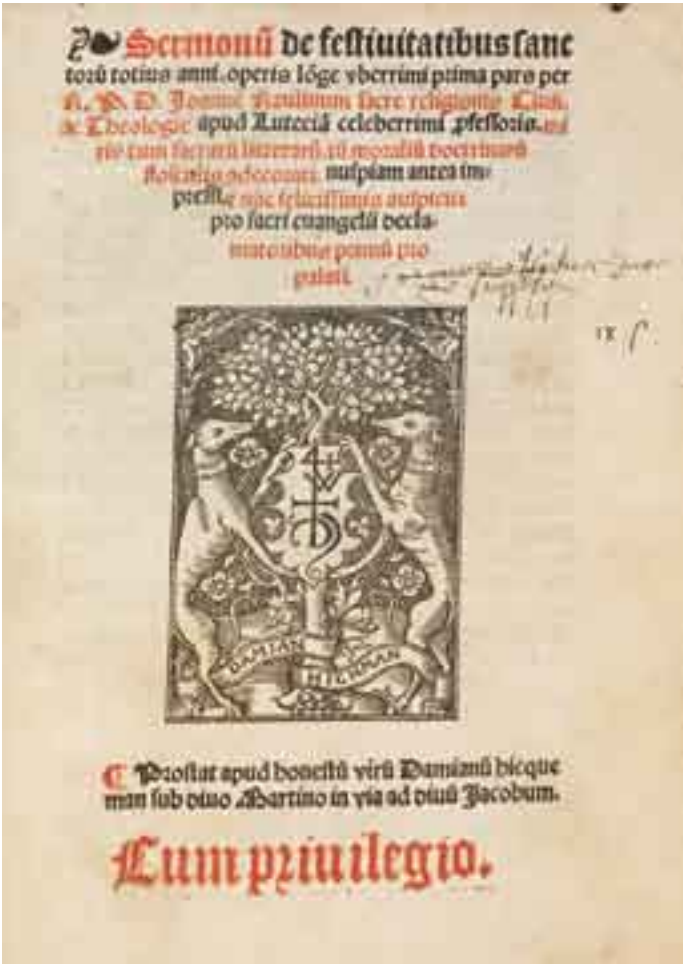 Sermonū de festiuitatibus sanc
torū totius anni. operis lōge vberrimi prima pars per
R. P. D. Joannē Raulinum sacre religionis Clun.
& Theologie apud Luteciā celeberrimi ꝓfessoris.
tum sacrarū litterarū, tū moraliū doctrinarū
nuspiam antea im-
presse nūc felicissimis auspiciis
pro sacri euangelii decla-
matoribus pro
palati.
IX
DAMIAN HICHMAN
¶ Prostat apud honestū virū Damianū hicque
man sub diuo Martino in via ad diuū Jacobum.
Cum priuilegio.